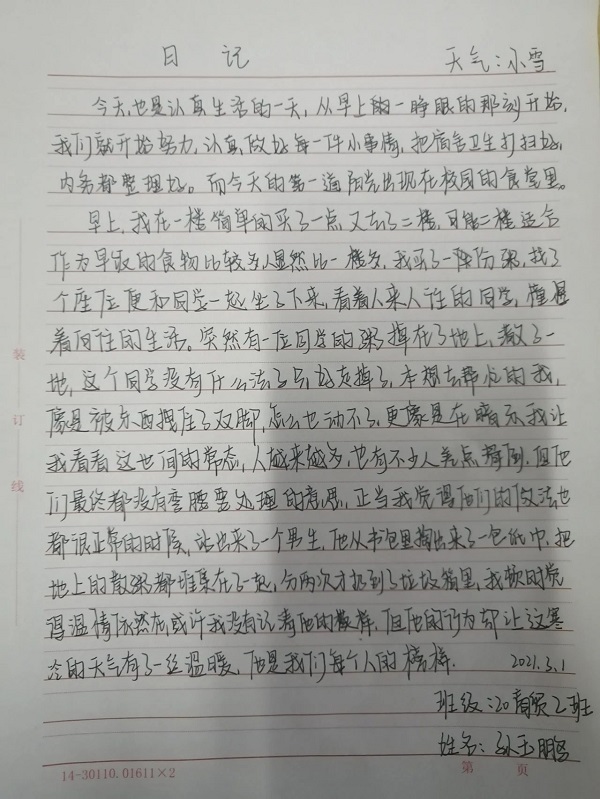 日 记 天气:小雪
今天,也是认真生活的一天,从早上的一睁眼的那刻开始,
我们就开始努力,认真做好每一件小事情,把宿舍卫生打扫好,
内务都整理好。而今天的第一道阳光出现在校园的食堂里。
早上,我在一楼简单的买了一点,又去了二楼,可能二楼适合
作为早饭的食物比较多,人显然比一楼多,我买了一份粥,找了
个座位便和同学一起坐了下来,看着人来人往的同学,憧憬
着向往的生活。突然有一位同学的粥掉在了地上,散了一
地,这个同学没有什么法了只好走掉了,本想去帮忙的我,
像是被东西拽住了双脚,怎么也动不了,更像是在暗示我让
我看看这世间的常态,人越来越多,也有不少人差点滑倒,但他
们最终都没有弯腰要处理的意思,正当我觉得他们的做法也
都很正常的时候,站出来了一个男生,他从书包里掏出来了一包纸巾,把
地上的散粥都堆集在了一起,分两次才扔到了垃圾箱里,我顿时觉
得温情依然在,或许我没有记清他的模样,但他的行为却让这寒
冷的天气有了一丝温暖,他是我们每个人的榜样. 2021.3.1
班级:20商贸2班
姓名:孙玉鹏
装
订
线
14-30110.01611×2 第 页